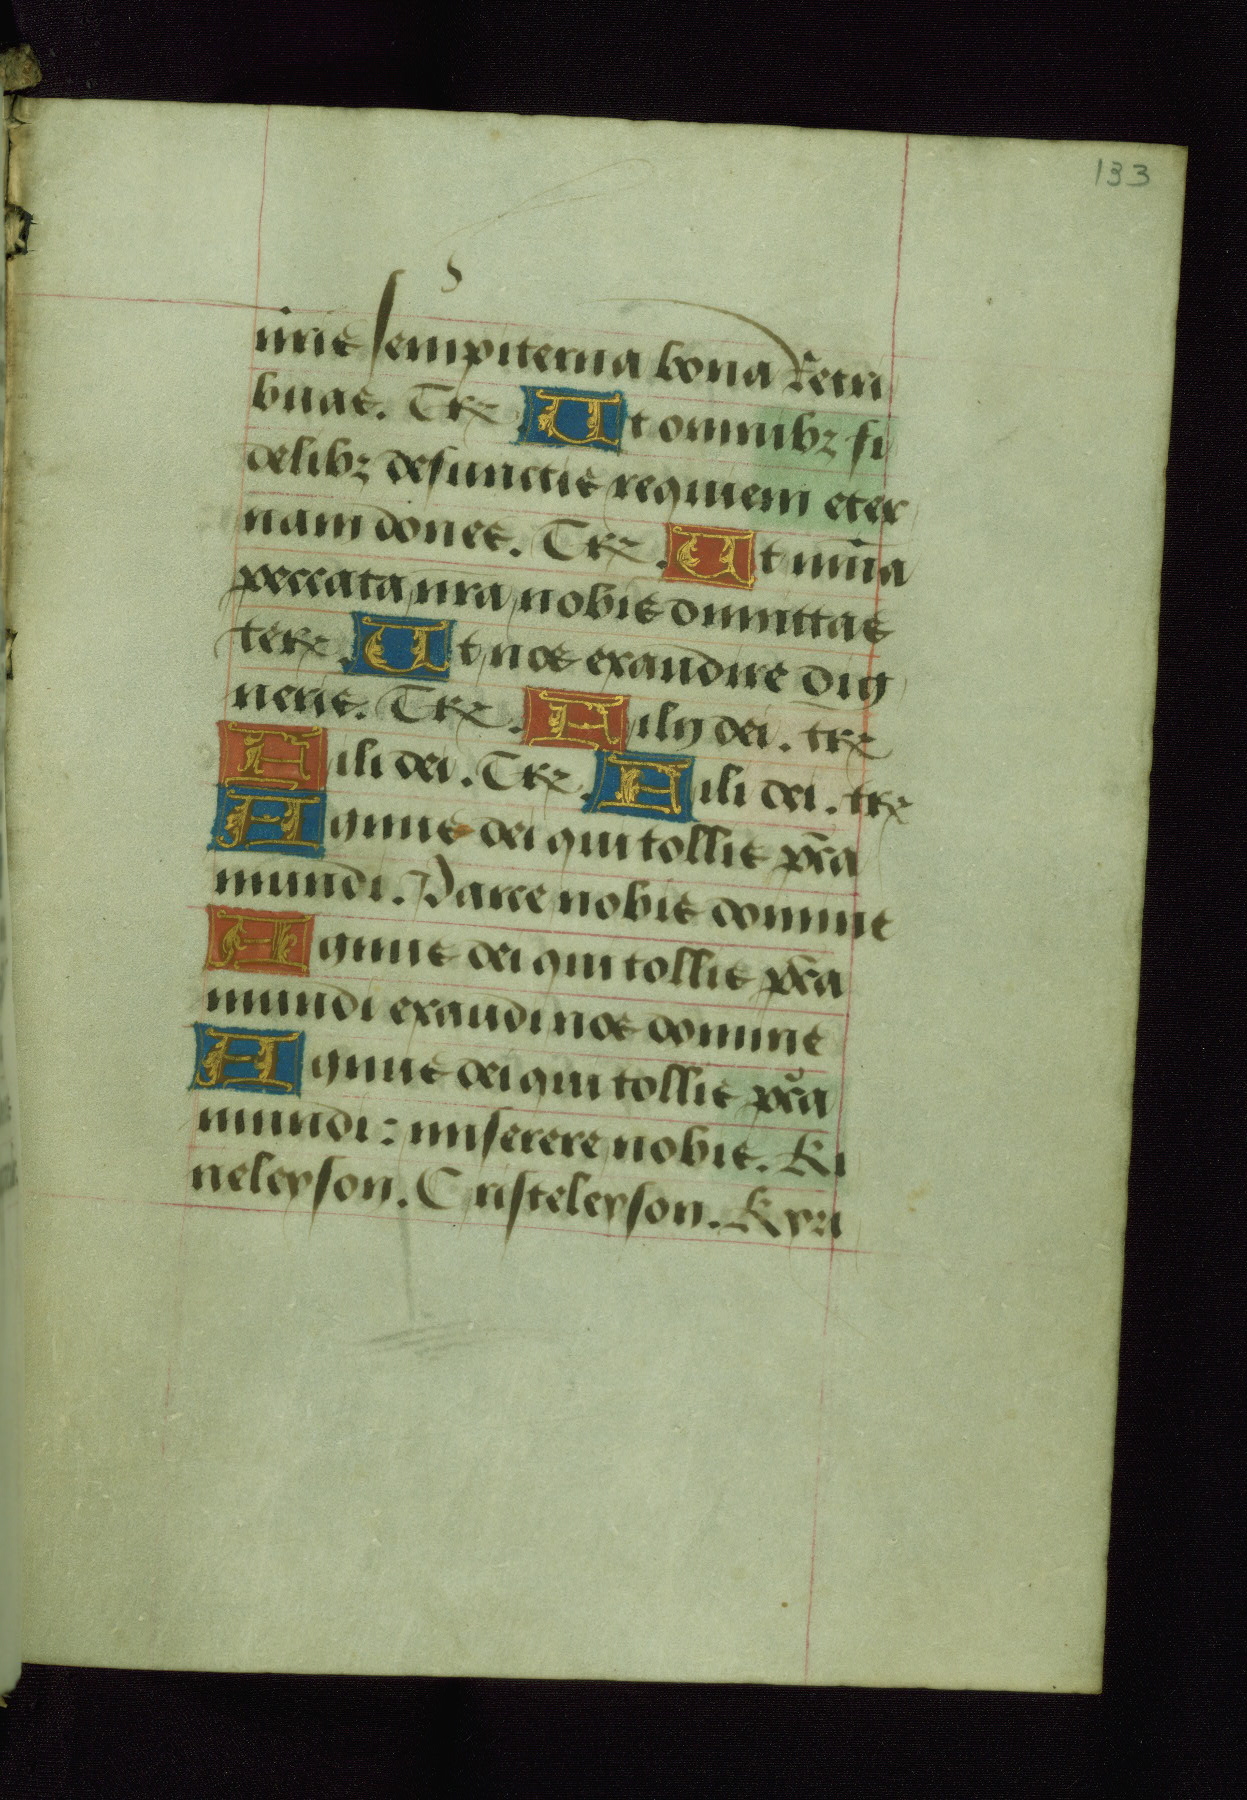 133
nr̄is sempiterna bona Retri
buas. Te rꝫ. Ut omnibꝫ fi
delibꝫ defunctis requiem eter
nam dones. Te rꝫ. Ut
peccata nr̄a nobis dimittas
te rꝫ. Ut nos exaudire dig
neris. Te rꝫ. Fily dei. te rꝫ
Fili dei. Te rꝫ. Fili dei. te rꝫ
Agnus dei qui tollis pc̄ca
mundi. Parce nobis domine
Agnus dei qui tollis pc̄ca
mundi exaudi nos domine
Agnus dei qui tollis pc̄ca
mundi: miserere nobis. Ki
neleyson. Cristeleyson. Kyri